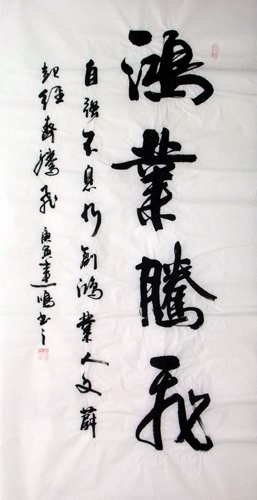 鴻業騰飛
自强不息行創鴻業人文薛
起經齊騰飛庚寅建鳴书